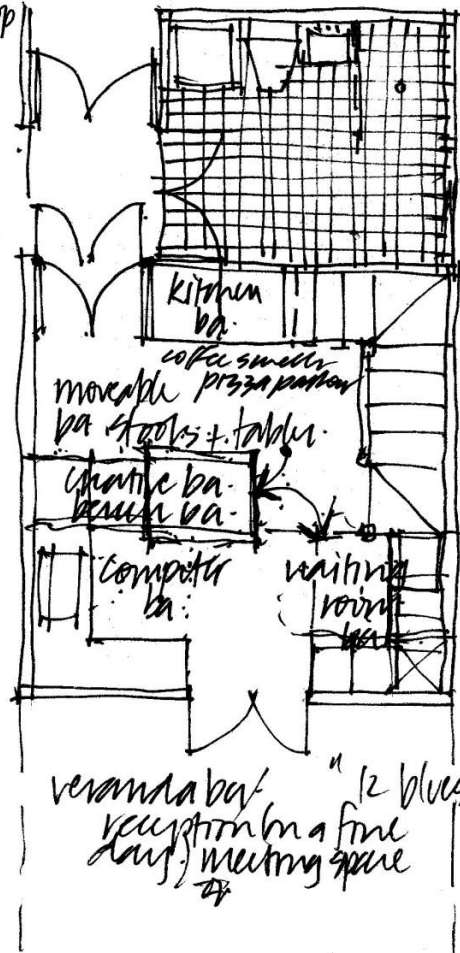 p
kitchen
ba.
coffee smells
pizza parlour
moveable
ba stools + tables.
creative ba.
ba.
computer
ba.
waiting
room
ba.
veranda bar " 12 blues
reception on a fine
day, meeting space